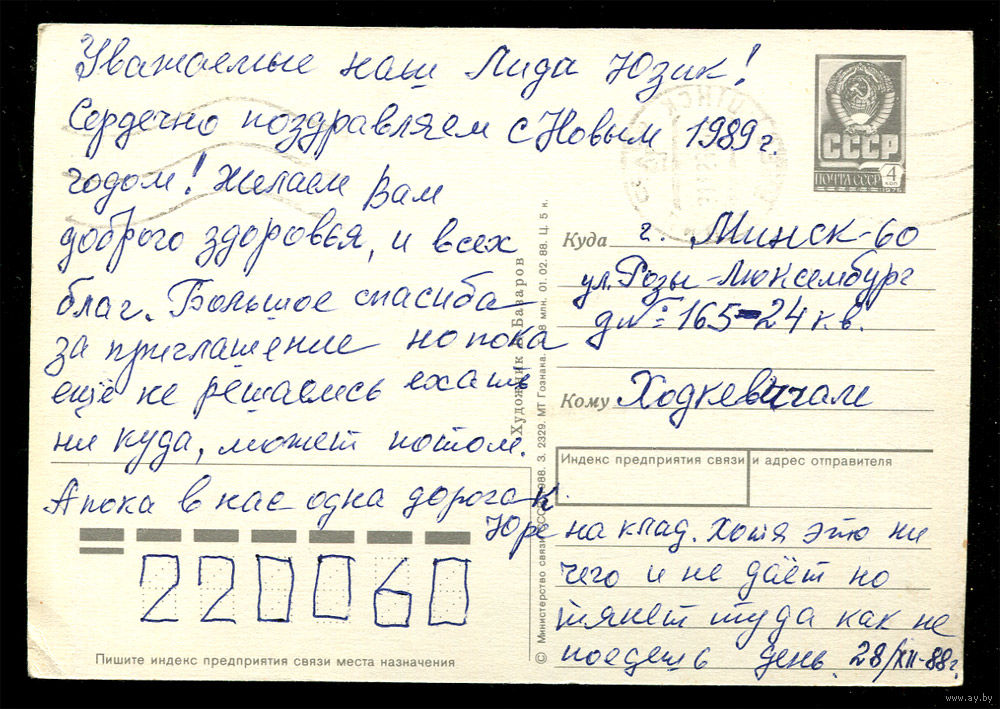 Уважаемые наш Лида Юзик!
Сердечно поздравляем с Новым 1989 г.
годом! Желаем Вам
доброго здоровья, и всех
благ. Большое спасиба
за приглашение но пока
ещё не решались ехать
ни куда, может потом.
А пока в нас одна дорога к
Юре на клад. Хотя это ни
чего и не даёт но
тянет туда как не
поедешь день. 28/XII-88г.
СССР
ПОЧТА СССР
4 коп
1976
Куда г. Минск-60
ул. Розы-Люксембург
дм: 165-24 к.в.
Кому Ходкевичам
Индекс предприятия связи и адрес отправителя
220060
Пишите индекс предприятия связи места назначения
Художник А. Базаров
© Министерство связи СССР. 1988. З. 2329. МТ Гознака. 8 млн. 01. 02. 88. Ц. 5 к.
www.ay.by